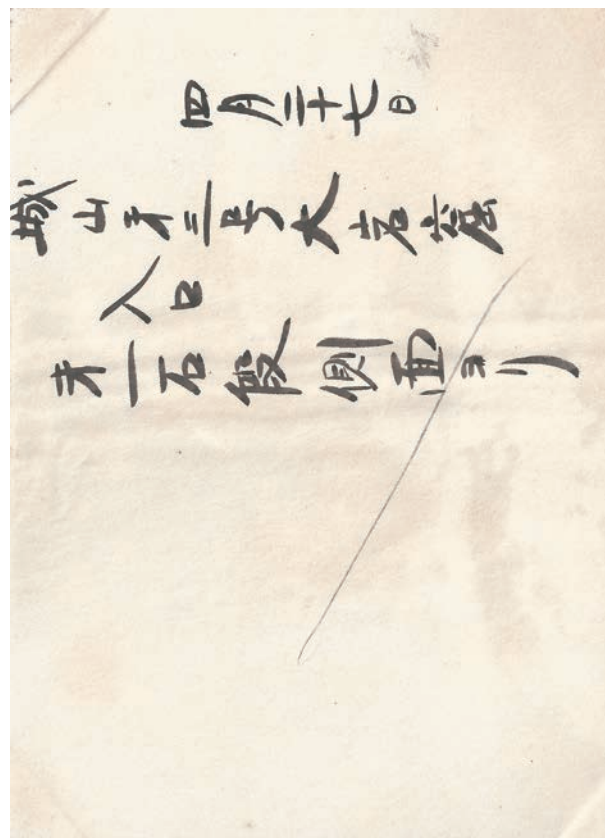 四月二十七日
城山才二号大古墳
入口
才一石段側面ヨリ